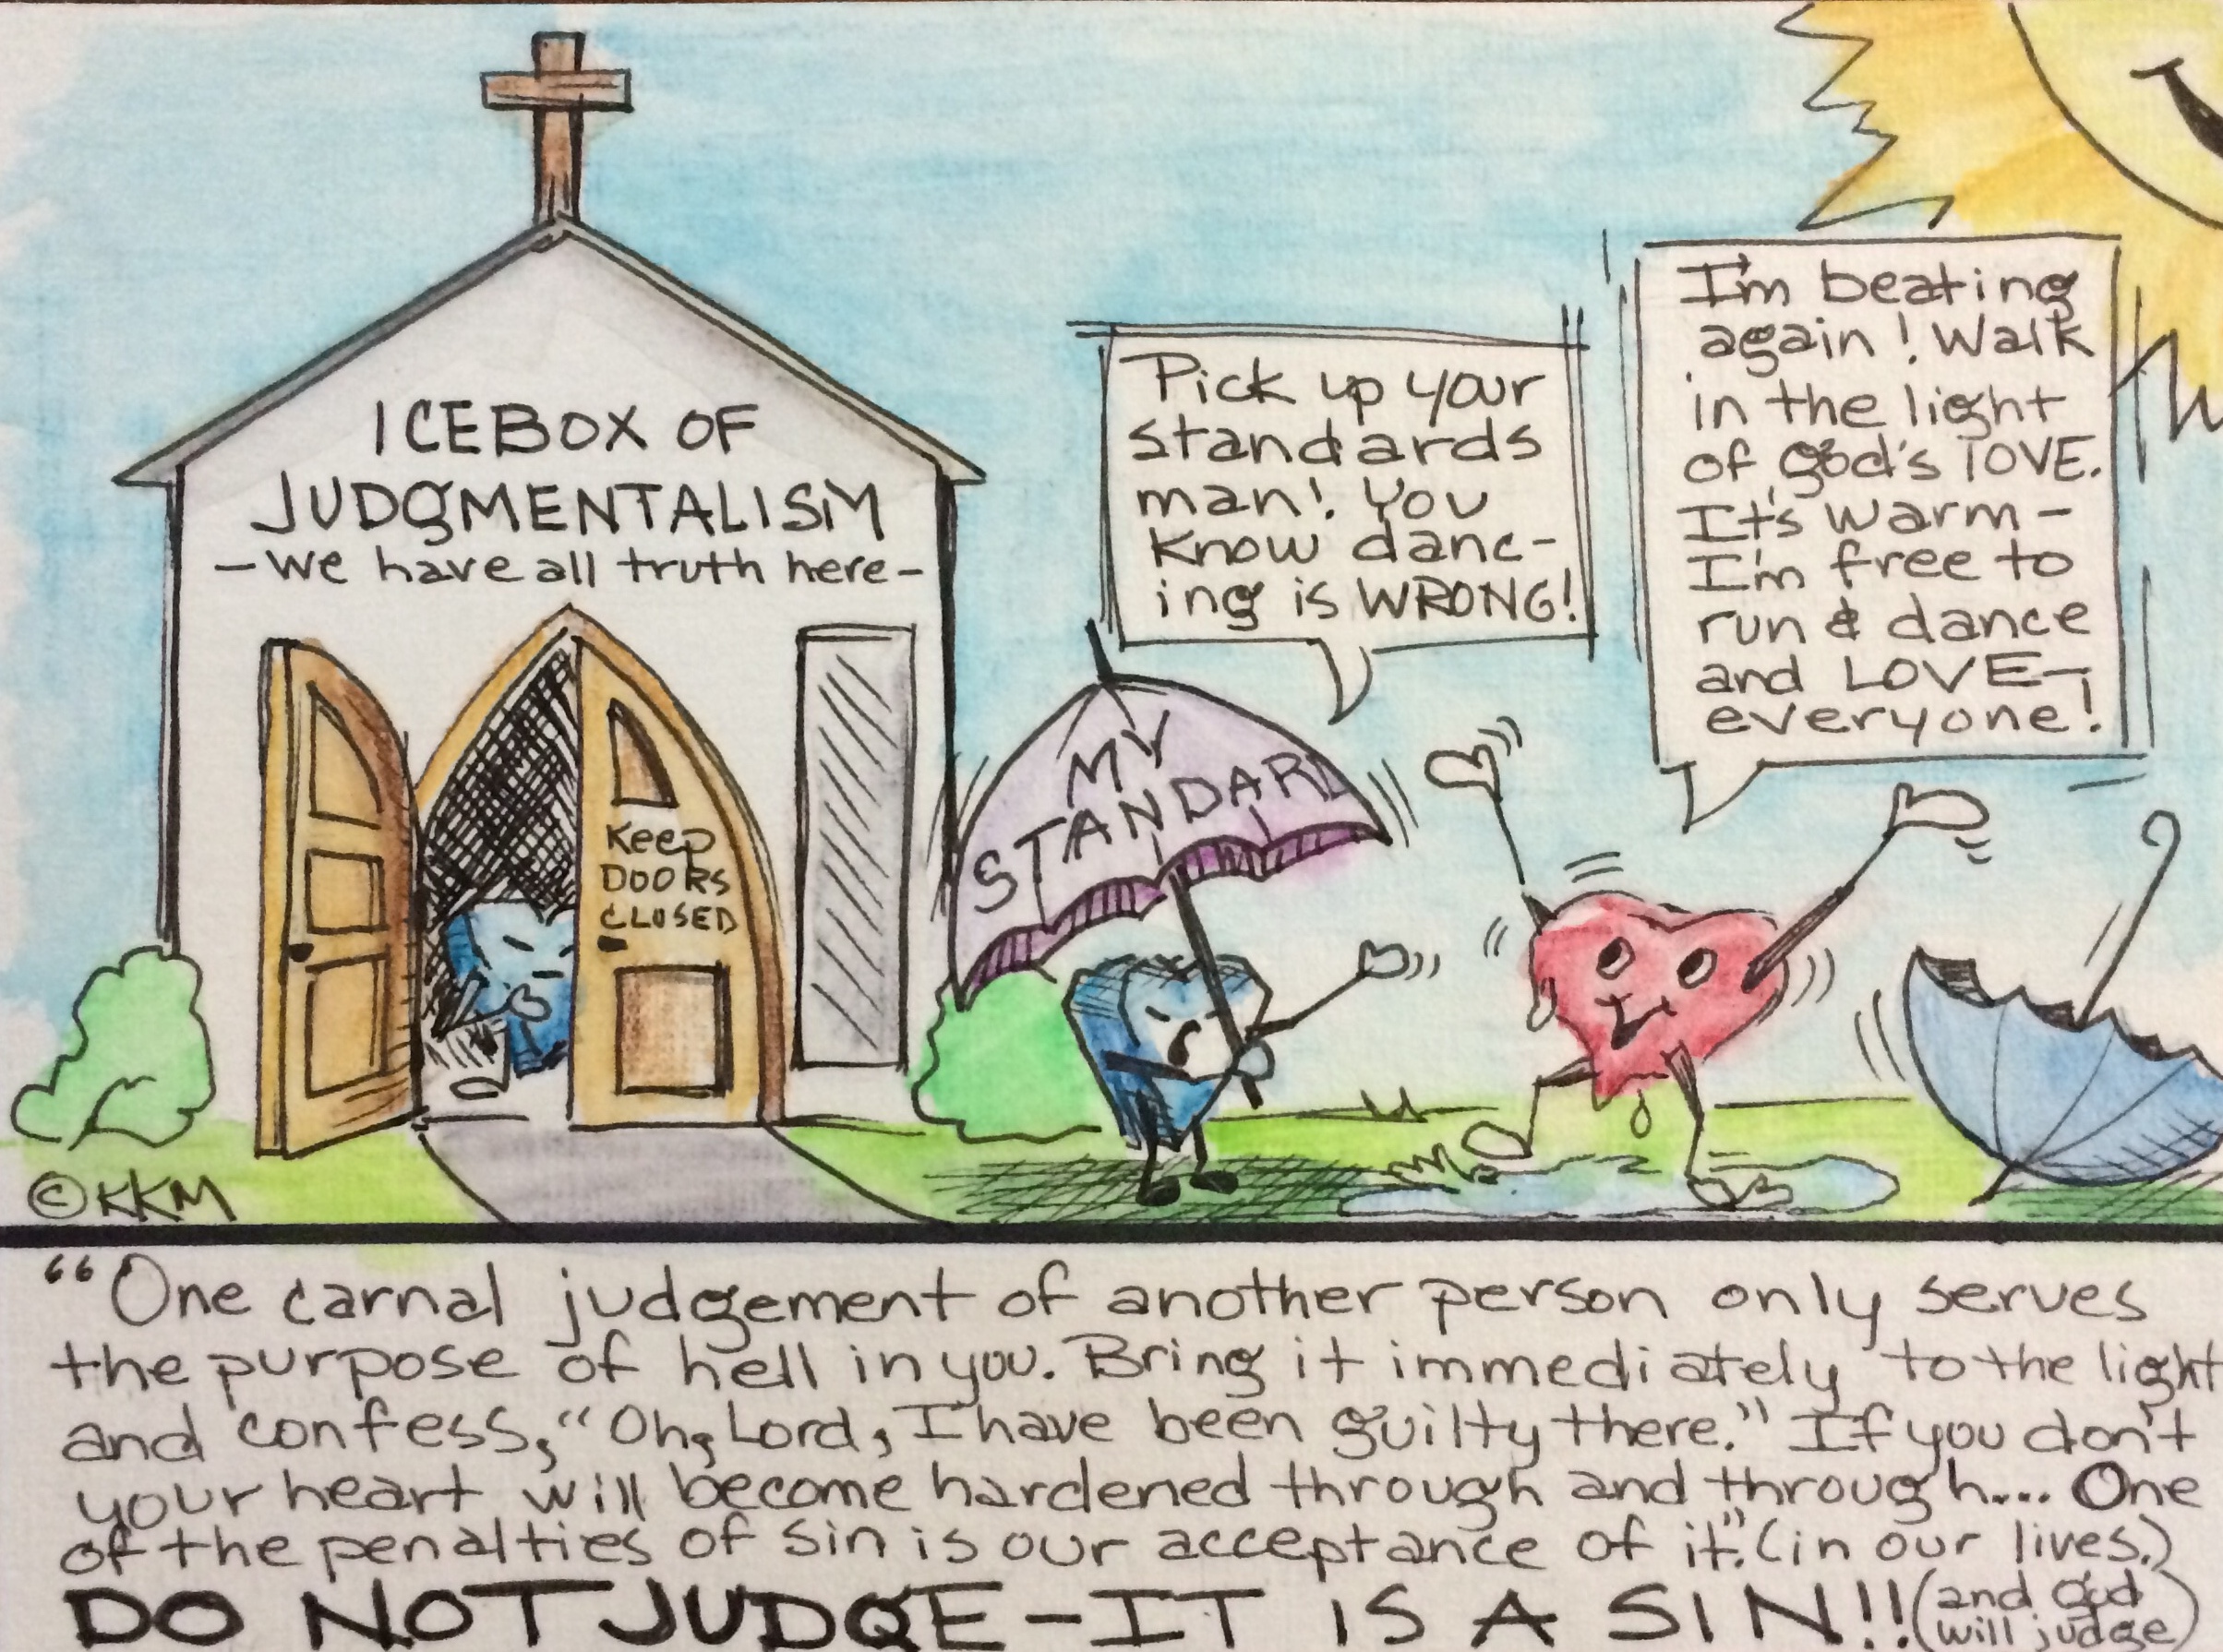 ICEBOX OF
JUDGMENTALISM
-We have all truth here-
Keep
DOORS
CLOSED
MY
STANDARD
Pick up your
standards
man! You
know danc-
ing is WRONG!
I'm beating
again! Walk
in the light
of God's LOVE.
It's warm-
I'm free to
run & dance
and LOVE-
everyone!
©KKM
"One carnal judgement of another person only serves
the purpose of hell in you. Bring it immediately to the light
and confess, "Oh, Lord, I have been guilty there." If you don't
your heart will become hardened through and through... One
of the penalties of sin is our acceptance of it." (in our lives.)
DO NOT JUDGE-IT IS A SIN!! (and God
will judge)